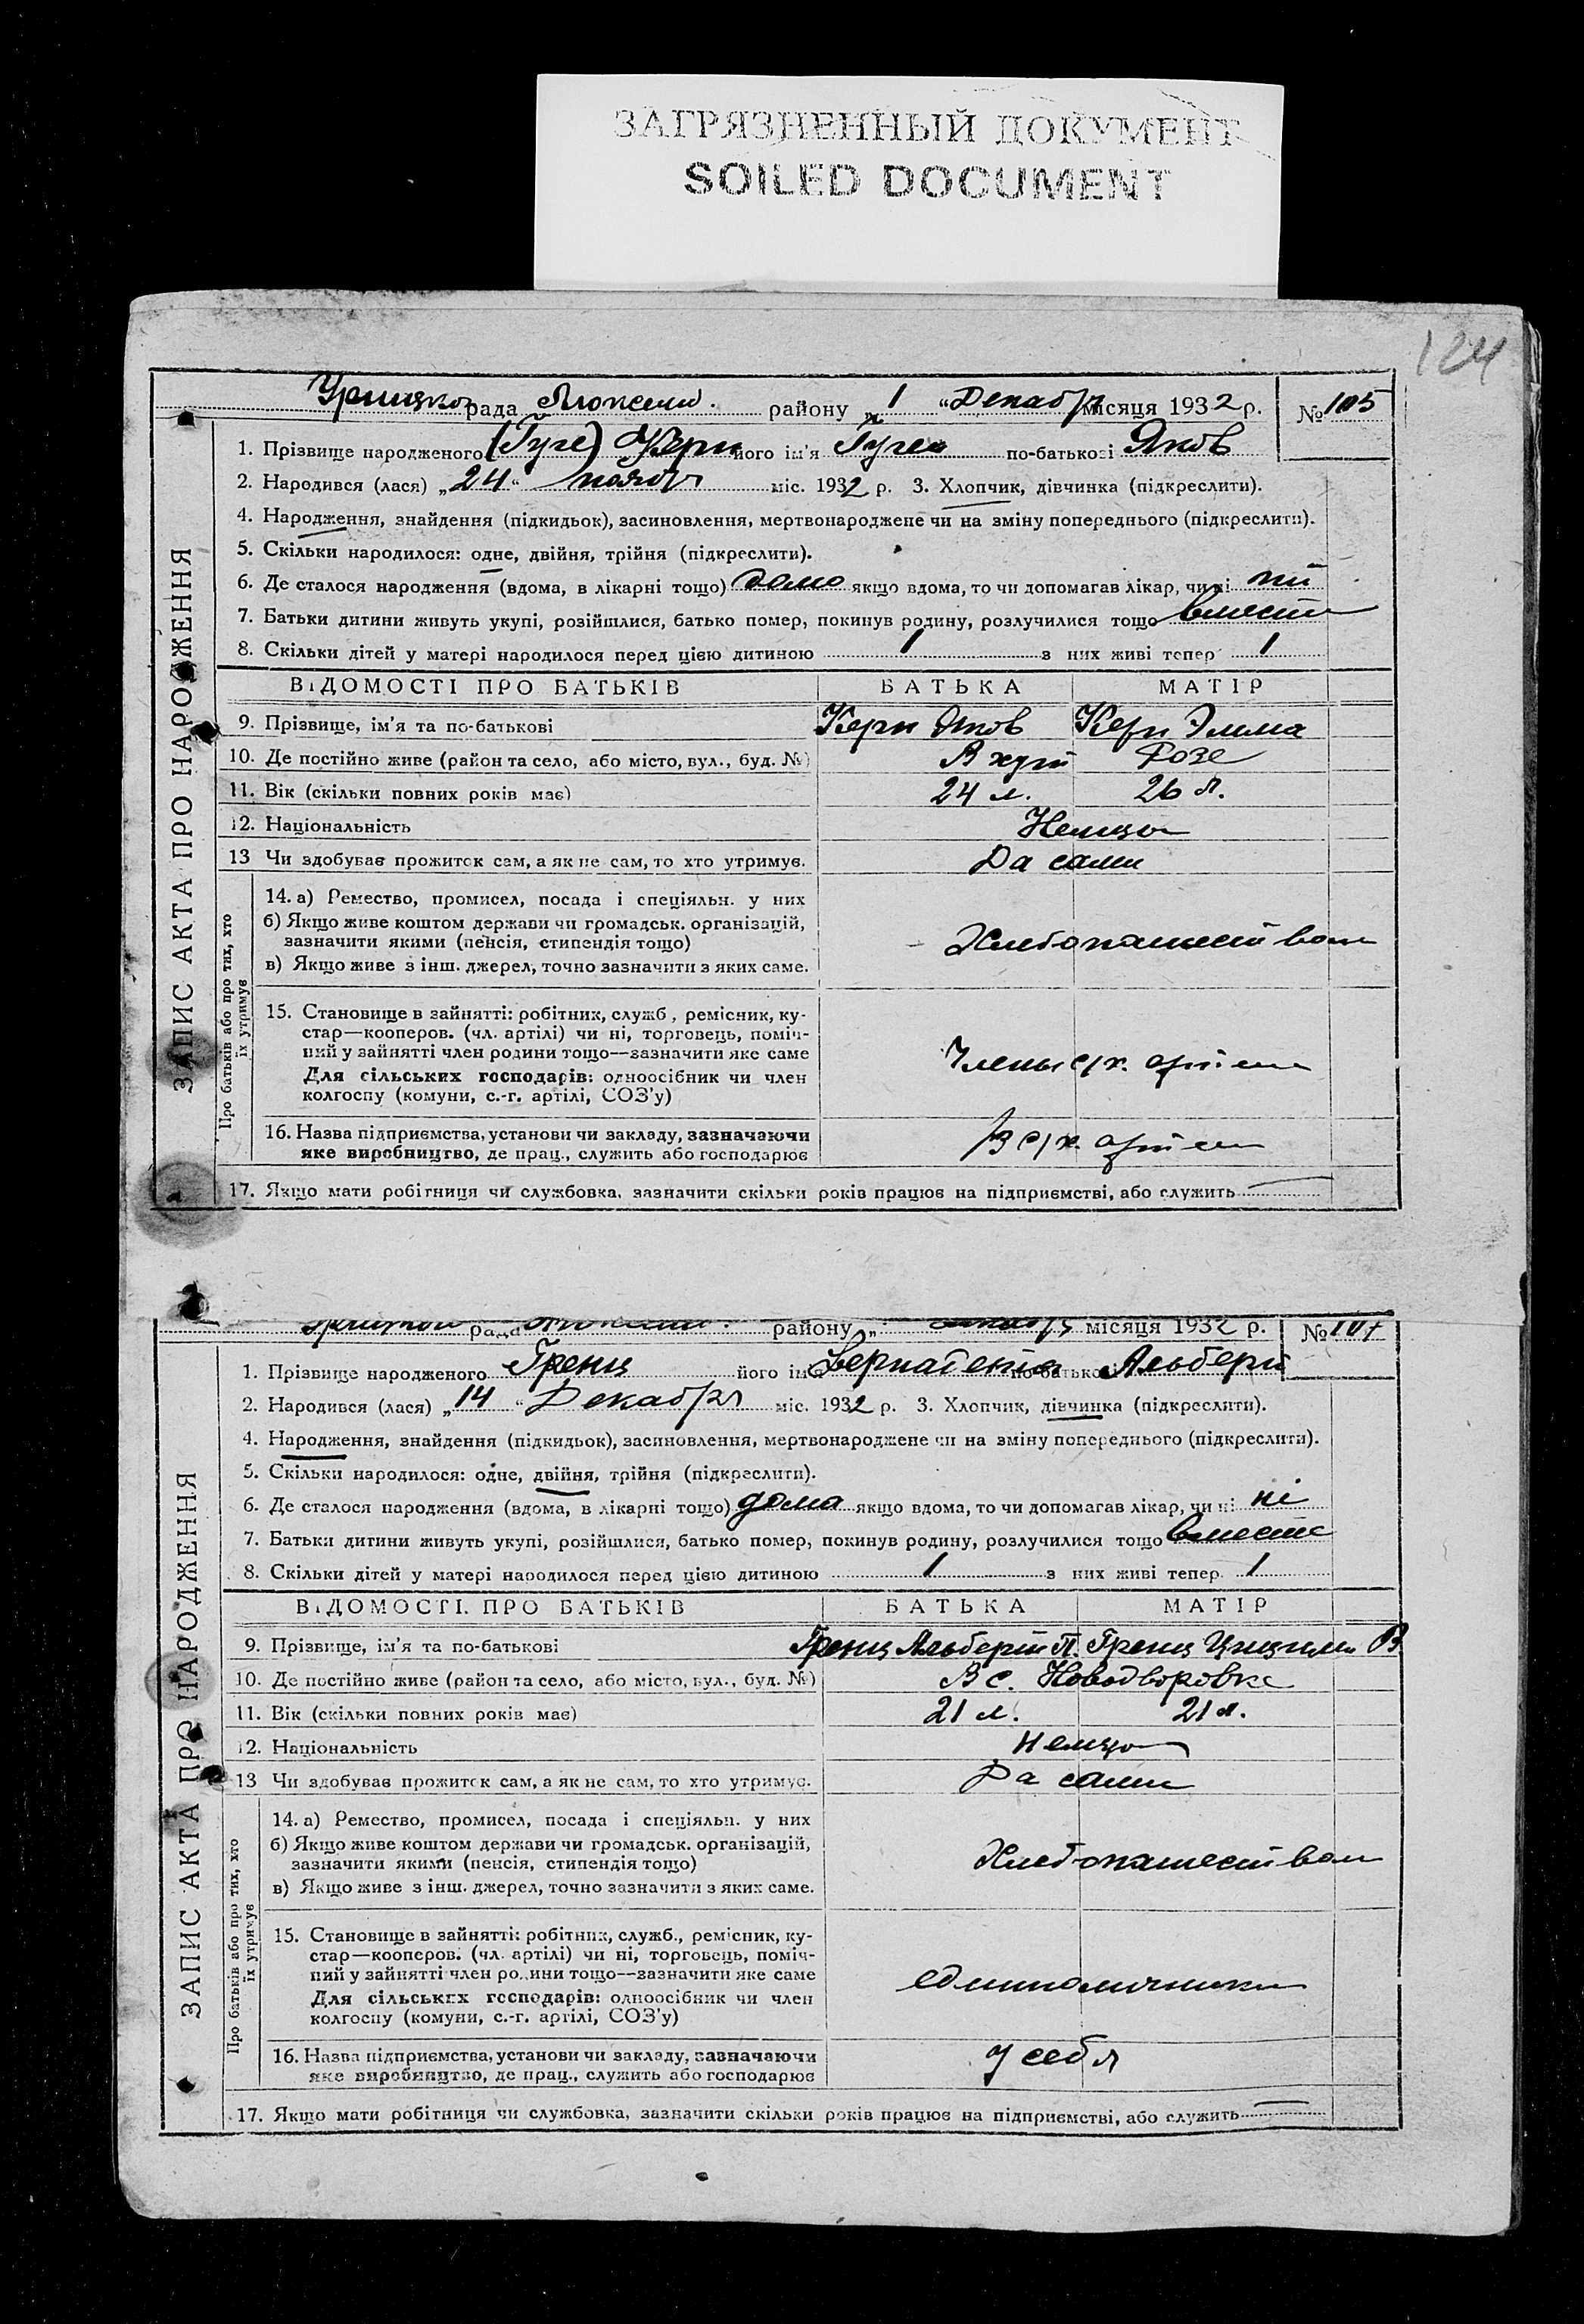 ЗАГРЯЗНЕННЫЙ ДОКУМЕНТ
SOILED DOCUMENT
124
рада району „1“ Декабря місяця 1932 р. № 105
1. Прізвище народженого (Гуге) Керн його ім'я Гуго по-батькові Яков
2. Народився (лася) „24“ ноября міс. 1932 р. 3. Хлопчик, дівчинка (підкреслити).
4. Народження, знайдення (підкидьок), засиновлення, мертвонароджене чи на зміну попереднього (підкреслити).
5. Скільки народилося: одне, двійня, трійня (підкреслити).
6. Де сталося народження (вдома, в лікарні тощо) дома якщо вдома, то чи допомагав лікар, чи ні
7. Батьки дитини живуть укупі, розійшлися, батько помер, покинув родину, розлучилися тощо вместе
8. Скільки дітей у матері народилося перед цією дитиною 1 з них живі тепер 1
ВІДОМОСТІ ПРО БАТЬКІВ БАТЬКА МАТІР
9. Прізвище, ім'я та по-батькові Керн Яков Керн Элима
10. Де постійно живе (район та село, або місто, вул., буд. №) В хут Розе
11. Вік (скільки повних років має) 24 л. 26 л.
12. Національність Немцы
13 Чи здобуває прожиток сам, а як не сам, то хто утримує. Да сами
14. а) Ремество, промисел, посада і спеціяльн. у них
б) Якщо живе коштом держави чи громадськ. організацій,
зазначити якими (пенсія, стипендія тощо) Хлебопашеством
в) Якщо живе з інш. джерел, точно зазначити з яких саме.
15. Становище в зайнятті: робітник, служб., ремісник, ку-
стар—кооперов. (чл. артілі) чи ні, торговець, поміч-
ний у зайнятті член родини тощо—зазначити яке саме
Для сільських господарів: одноосібник чи член Члены с/х. артели
колгоспу (комуни, с.-г. артілі, СОЗ'у)
16. Назва підприємства, установи чи закладу, зазначаючи
яке виробництво, де прац., служить або господарює В с/х. артели
17. Якщо мати робітниця чи службовка, зазначити скільки років працює на підприємстві, або служить
ЗАПИС АКТА ПРО НАРОДЖЕННЯ
Про батьків або про тих, хто
їх утримує
рада району „ місяця 1932 р. № 107
1. Прізвище народженого Гренц його ім'я по-батькові Альберт
2. Народився (лася) „14“ Декабря міс. 1932 р. 3. Хлопчик, дівчинка (підкреслити).
4. Народження, знайдення (підкидьок), засиновлення, мертвонароджене чи на зміну попереднього (підкреслити).
5. Скільки народилося: одне, двійня, трійня (підкреслити).
6. Де сталося народження (вдома, в лікарні тощо) дома якщо вдома, то чи допомагав лікар, чи ні ні
7. Батьки дитини живуть укупі, розійшлися, батько помер, покинув родину, розлучилися тощо вместе
8. Скільки дітей у матері народилося перед цією дитиною 1 з них живі тепер 1
ВІДОМОСТІ ПРО БАТЬКІВ БАТЬКА МАТІР
9. Прізвище, ім'я та по-батькові Гренц Альберт П. Гренц В
10. Де постійно живе (район та село, або місто, вул., буд. №) В с. Новодворовке
11. Вік (скільки повних років має) 21 л. 21 л.
12. Національність Немцы
13 Чи здобуває прожиток сам, а як не сам, то хто утримує. Да сами
14. а) Ремество, промисел, посада і спеціяльн. у них
б) Якщо живе коштом держави чи громадськ. організацій,
зазначити якими (пенсія, стипендія тощо) Хлебопашеством
в) Якщо живе з інш. джерел, точно зазначити з яких саме.
15. Становище в зайнятті: робітник, служб., ремісник, ку-
стар—кооперов. (чл. артілі) чи ні, торговець, поміч-
ний у зайнятті член родини тощо—зазначити яке саме единоличники
Для сільських господарів: одноосібник чи член
колгоспу (комуни, с.-г. артілі, СОЗ'у)
16. Назва підприємства, установи чи закладу, зазначаючи
яке виробництво, де прац., служить або господарює У себя
17. Якщо мати робітниця чи службовка, зазначити скільки років працює на підприємстві, або служить
ЗАПИС АКТА ПРО НАРОДЖЕННЯ
Про батьків або про тих, хто
їх утримує